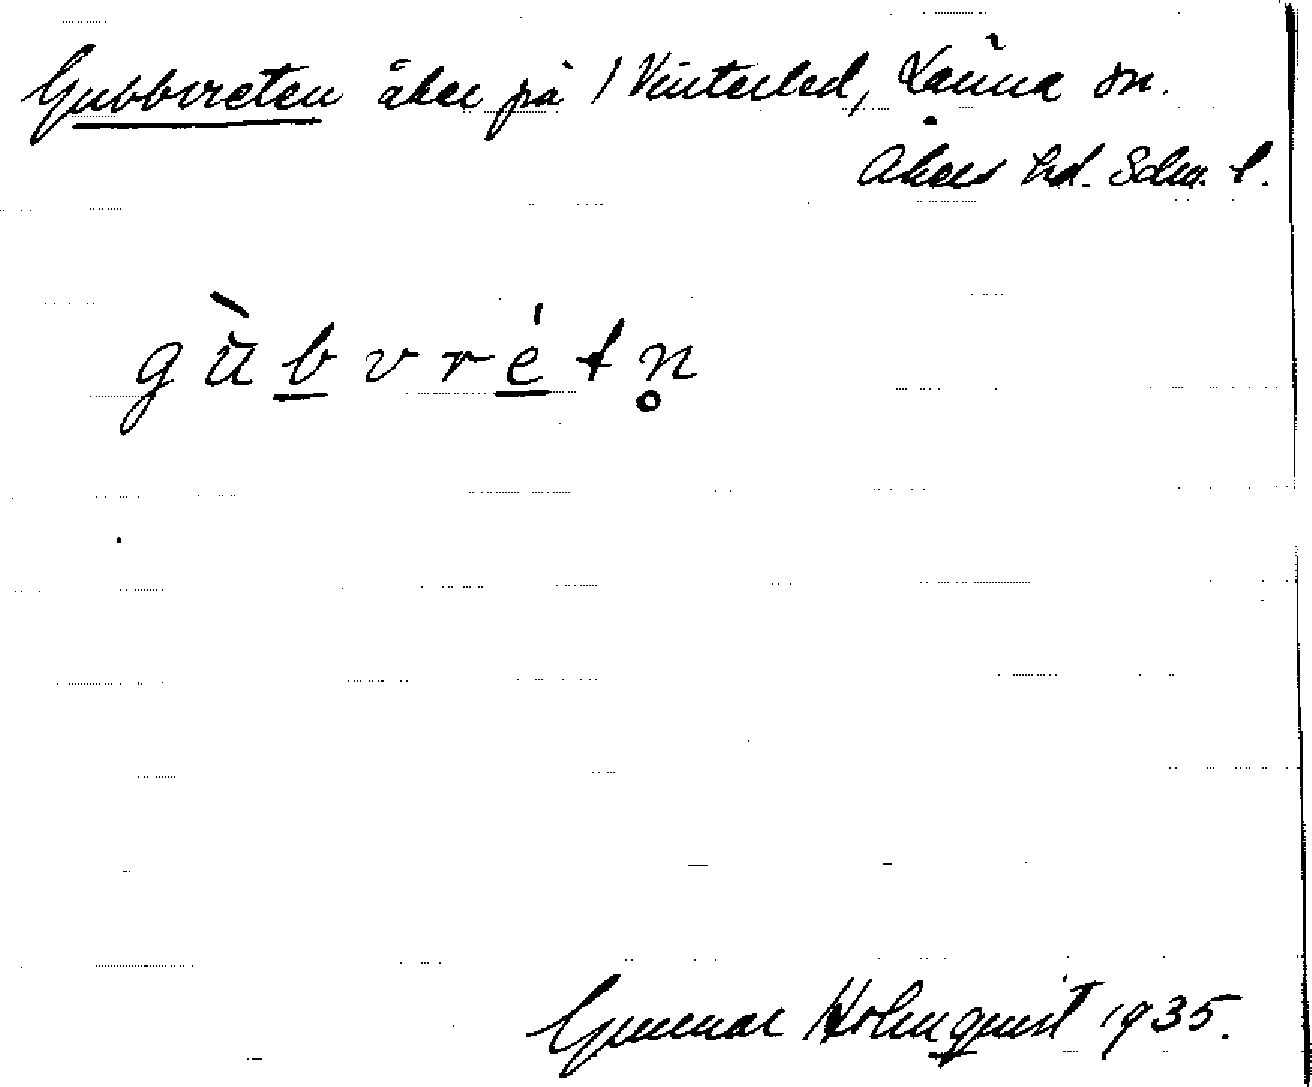 Gubbvreten åker på 1 Vinterled, Länna sn.
Åkers hd. Sdm. l.
gùbvrétn̥
Gunnar Holmquist 1935.